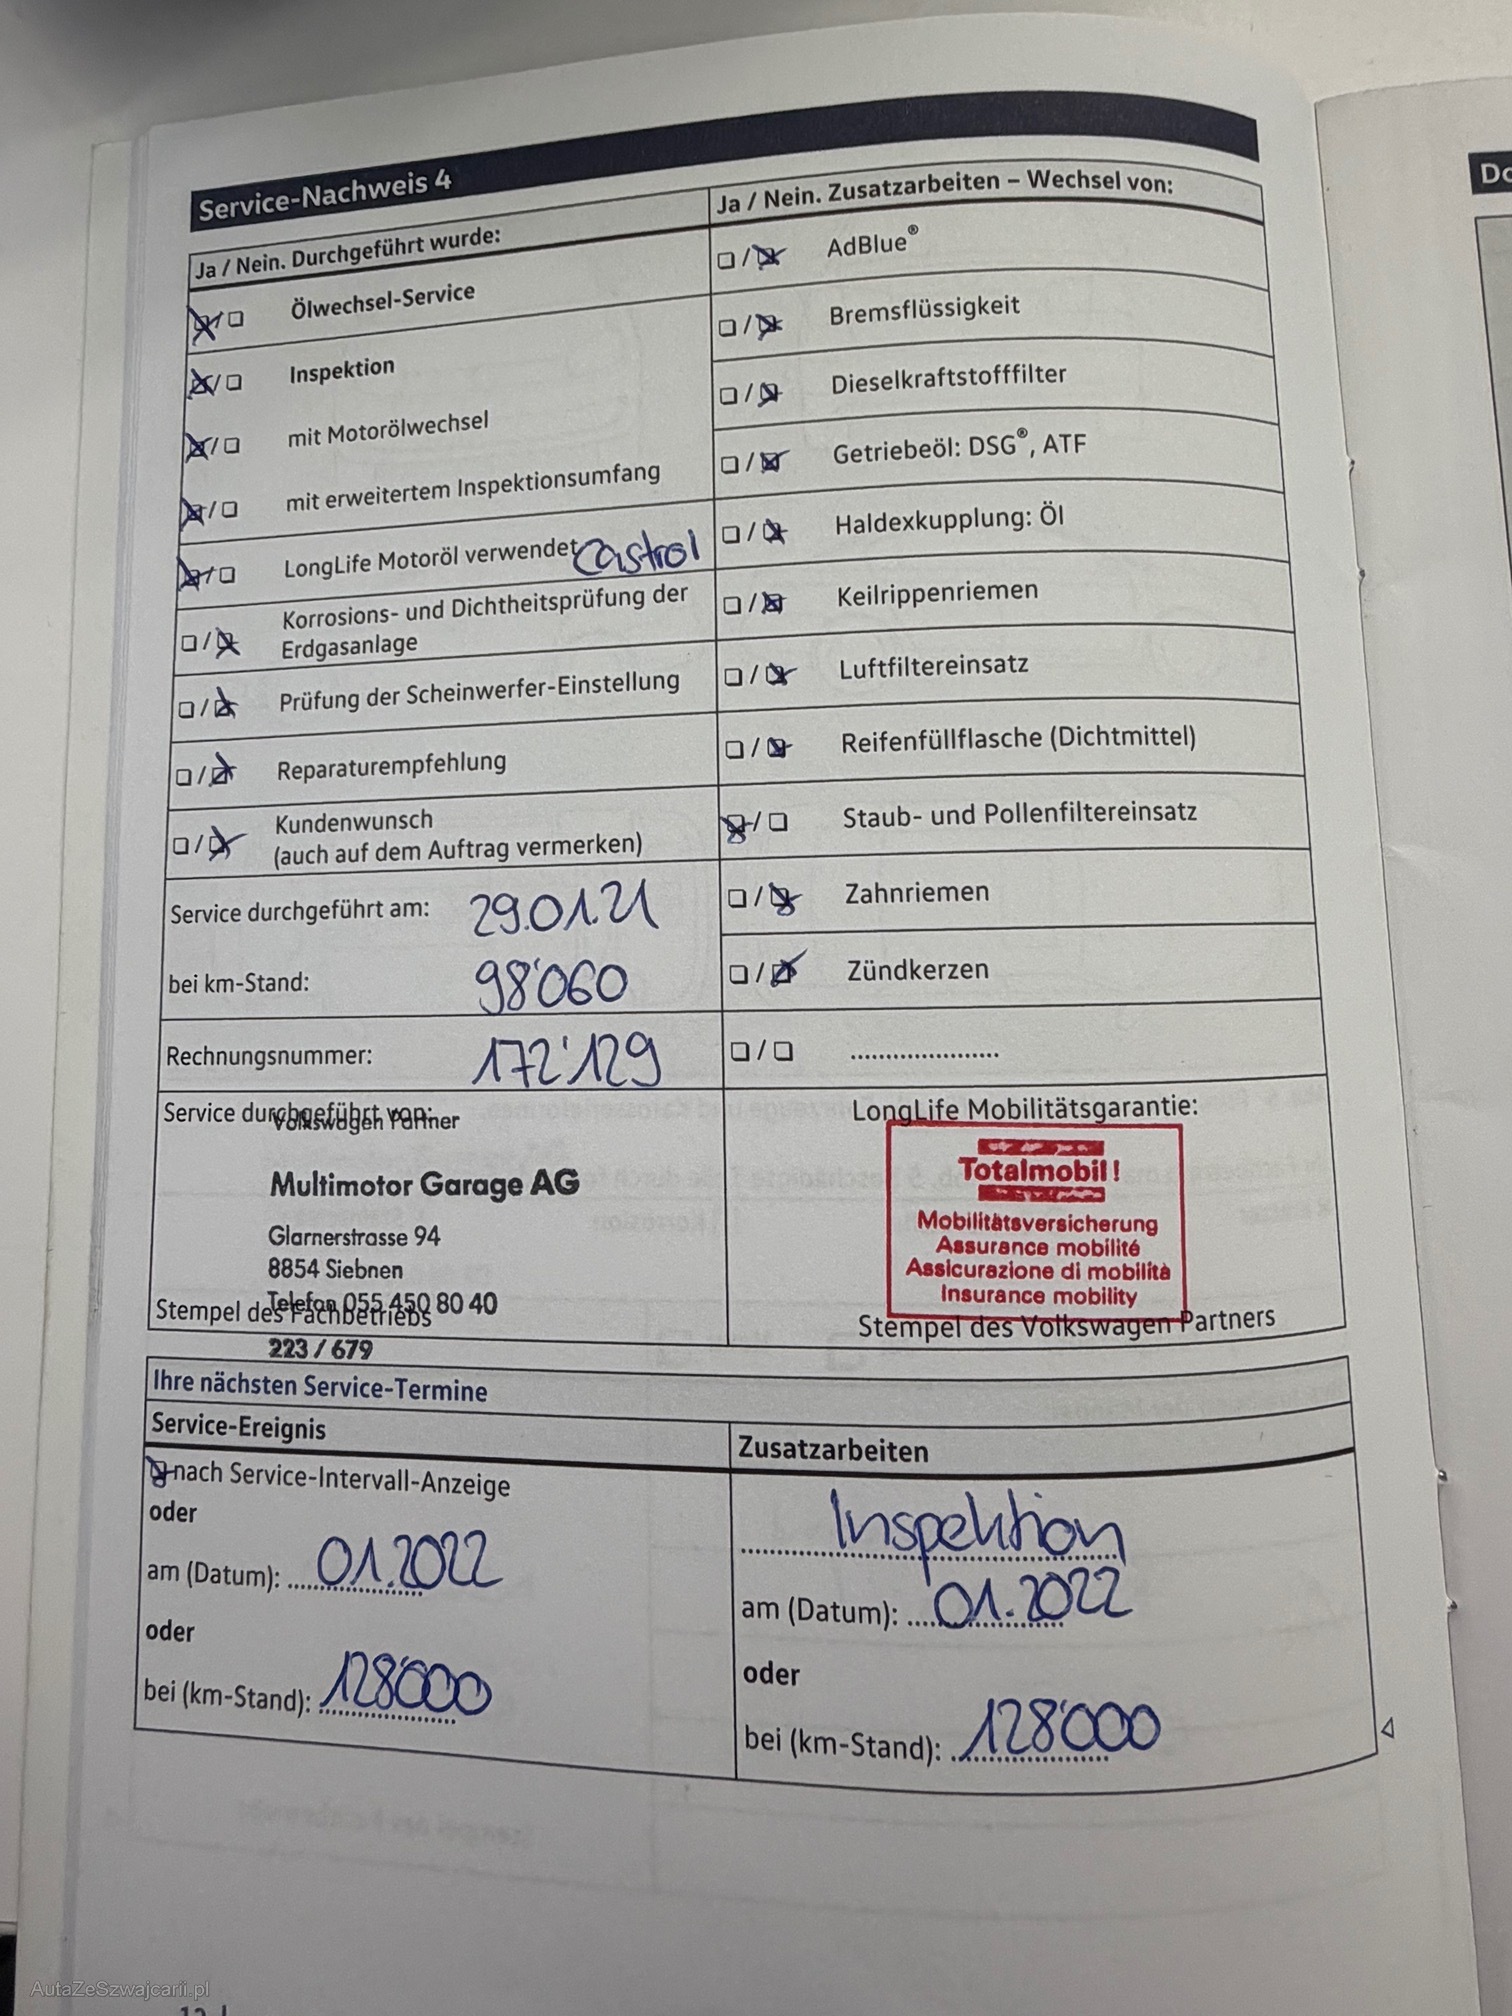 Service-Nachweis 4
Ja / Nein. Durchgeführt wurde:
Ölwechsel-Service
Inspektion
mit Motorölwechsel
mit erweitertem Inspektionsumfang
LongLife Motoröl verwendet Castrol
Korrosions- und Dichtheitsprüfung der
Erdgasanlage
Prüfung der Scheinwerfer-Einstellung
Reparaturempfehlung
Kundenwunsch
(auch auf dem Auftrag vermerken)
Service durchgeführt am: 29.01.21
bei km-Stand: 98'060
Rechnungsnummer: 172'129
Ja / Nein. Zusatzarbeiten – Wechsel von:
AdBlue®
Bremsflüssigkeit
Dieselkraftstofffilter
Getriebeöl: DSG®, ATF
Haldexkupplung: Öl
Keilrippenriemen
Luftfiltereinsatz
Reifenfüllflasche (Dichtmittel)
Staub- und Pollenfiltereinsatz
Zahnriemen
Zündkerzen
.....................
Service durchgeführt von:
Volkswagen Partner
Multimotor Garage AG
Glarnerstrasse 94
8854 Siebnen
Telefon 055 450 80 40
Stempel des Fachbetriebs
223 / 679
LongLife Mobilitätsgarantie:
Totalmobil!
Mobilitätsversicherung
Assurance mobilité
Assicurazione di mobilità
Insurance mobility
Stempel des Volkswagen Partners
Ihre nächsten Service-Termine
Service-Ereignis
nach Service-Intervall-Anzeige
oder
am (Datum): 01.2022
oder
bei (km-Stand): 128'000
Zusatzarbeiten
Inspektion
am (Datum): 01.2022
oder
bei (km-Stand): 128'000
Do
AutaZeSzwajcarii.pl